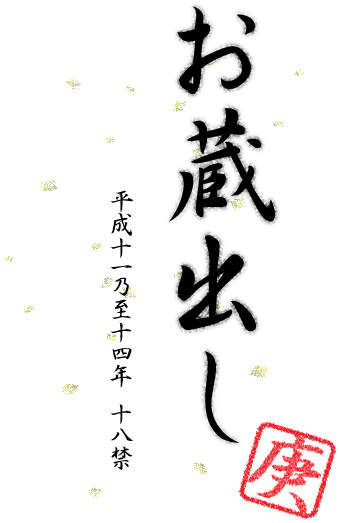 お蔵出し
平成十一乃至十四年 十八禁
庚